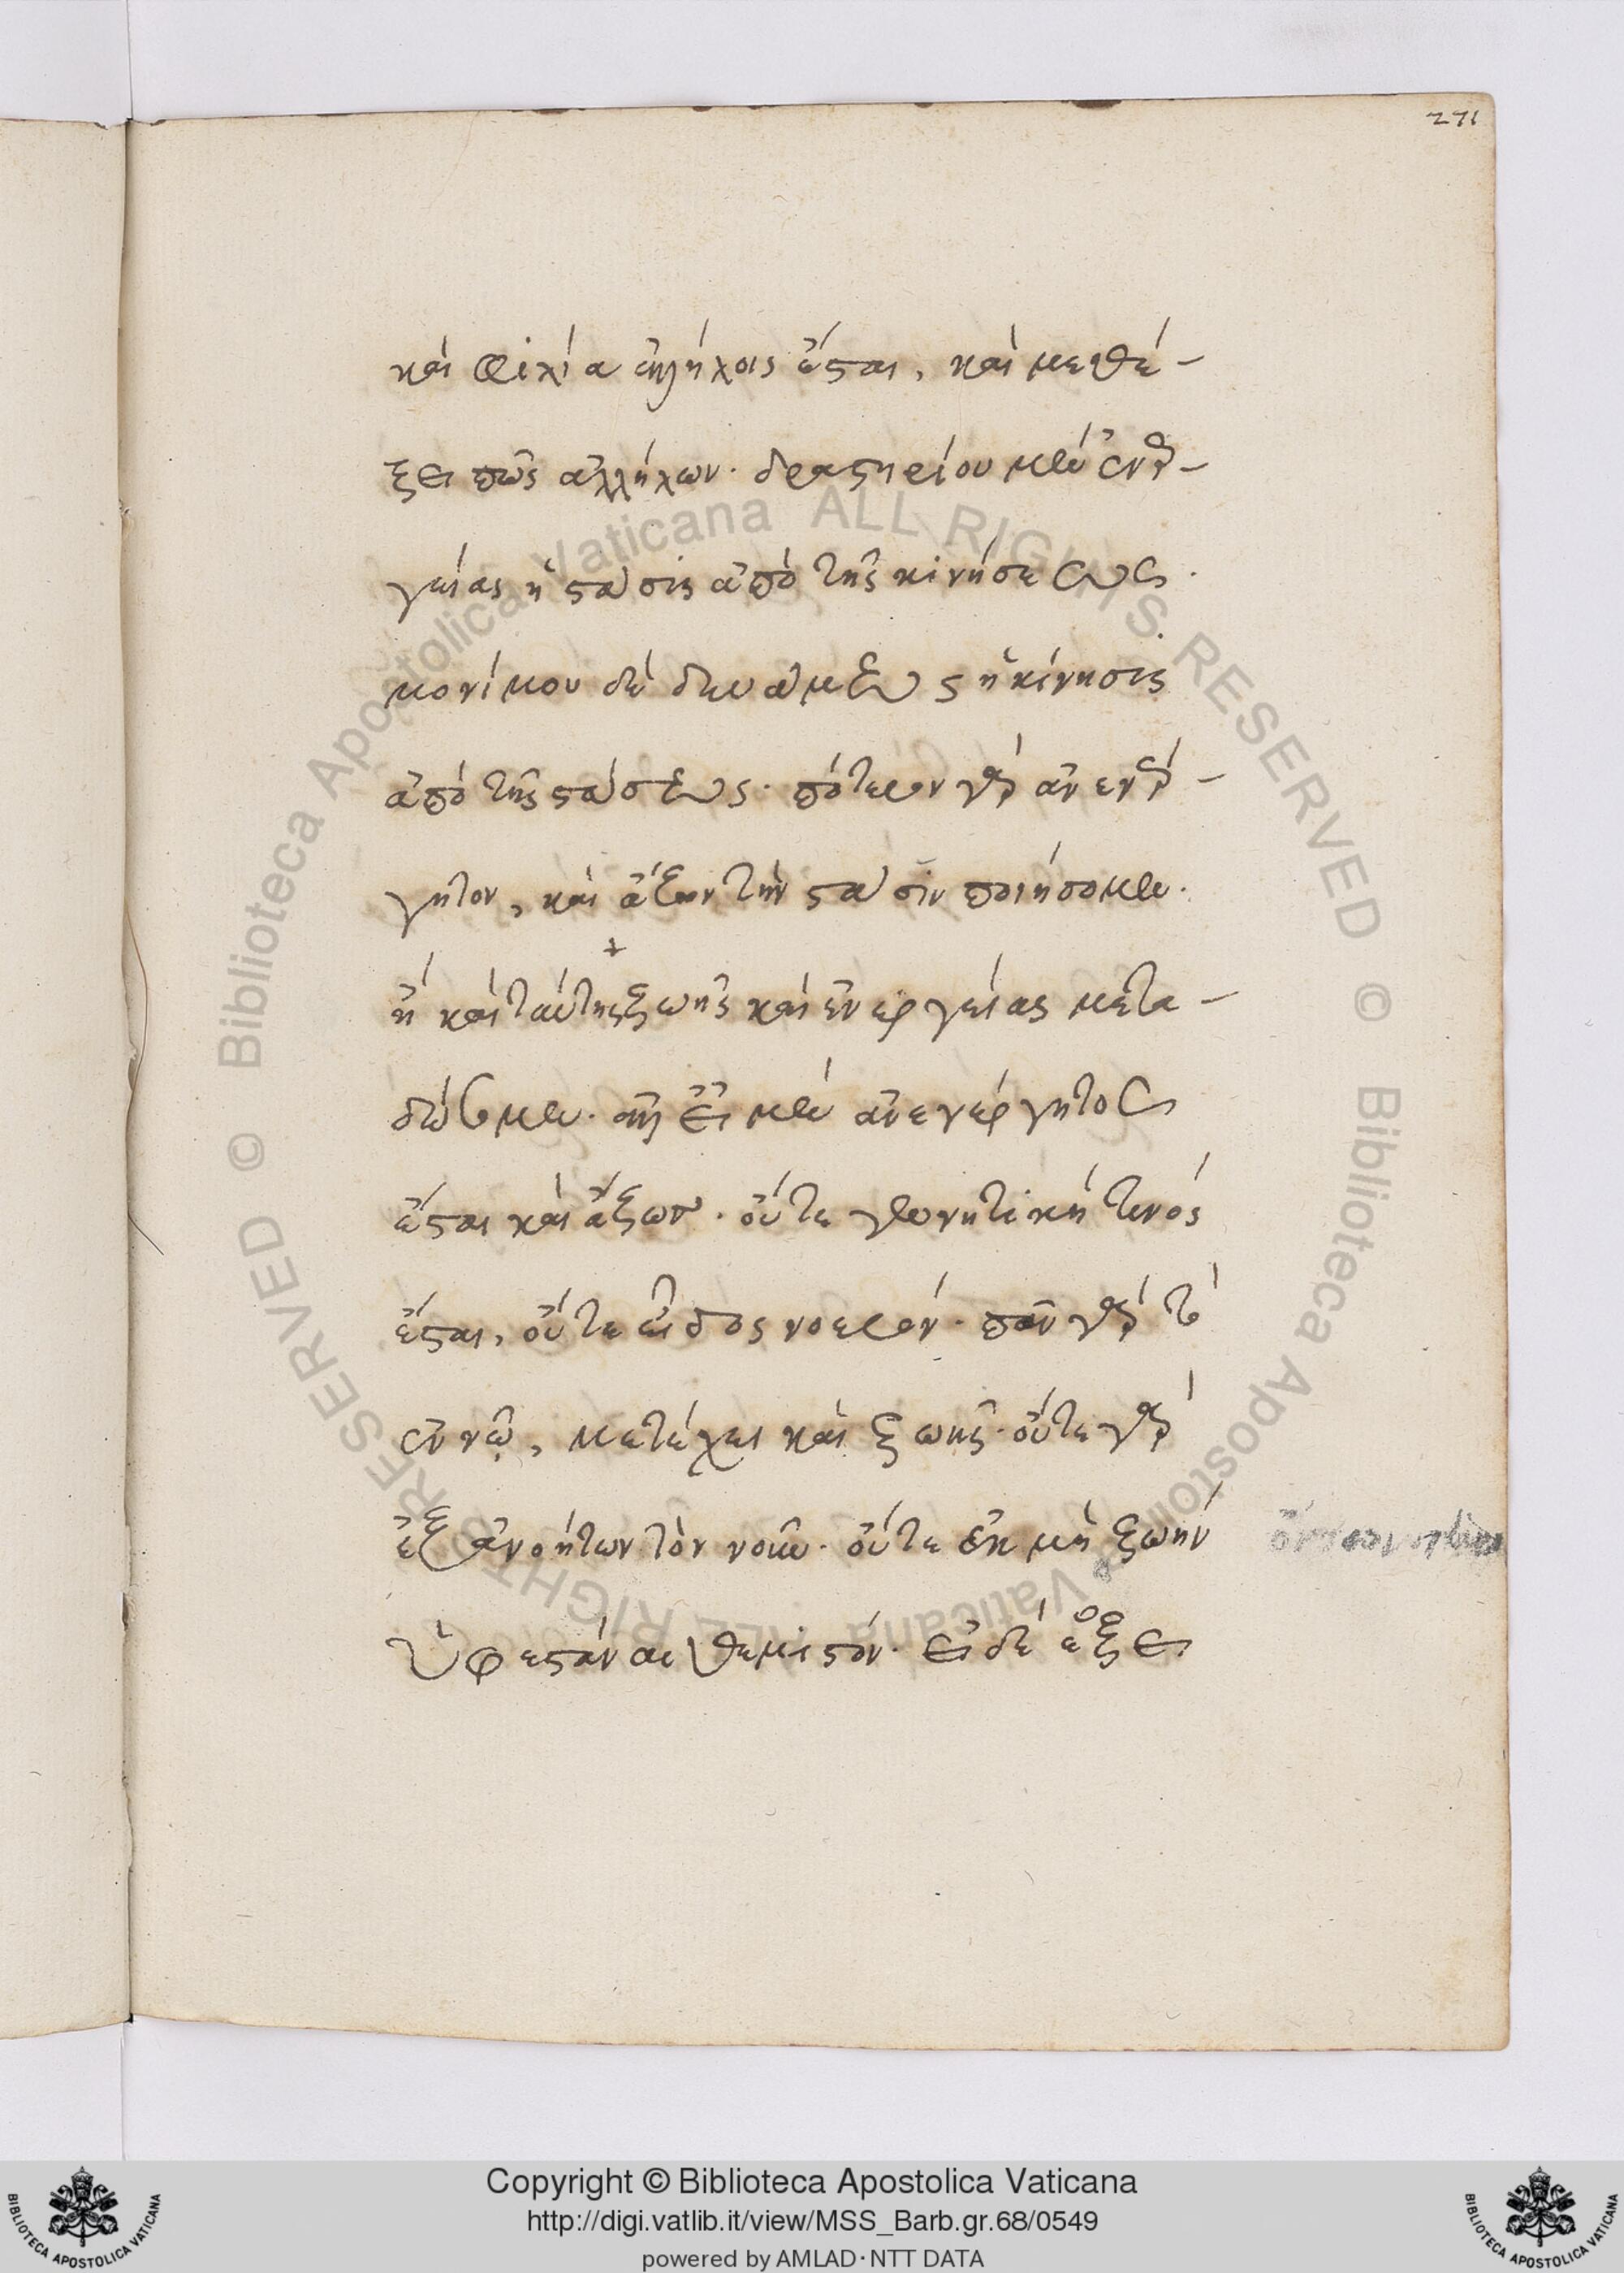 271
καὶ φιλία ἀλλήλοις ἔσται, καὶ μεθέ-
ξει πῶς ἀλλήλων. δραστηρίου μὲν ἐνερ-
γείας ἡ στάσις ἀπὸ τῆς κινήσεως.
μονίμου δὲ δυνάμεως ἡ κίνησις
ἀπὸ τῆς στάσεως. πότερον γὰρ ἀνενέρ-
γητον, καὶ ἄζων τὴν στάσιν ποιήσομεν.
ἢ καὶ ταύτης ζωῆς καὶ ἐνεργείας μετα-
δώσομεν. ἀλλ' εἰ μὲν ἀνενέργητος
ἔσται καὶ ἄζων. οὔτε γεννητική τινός
ἔσται, οὔτε εἶδος νοερόν. πᾶν γὰρ τὸ
ἐν νῷ, μετέχει καὶ ζωῆς. οὔτε γὰρ
ἐξ ἀνοήτων τὸν νοῦν. οὔτε ἐκ μὴ ζωήν
ὑφεστάναι θεμιστόν. εἰ δὲ ἕξει
Copyright © Biblioteca Apostolica Vaticana
http://digi.vatlib.it/view/MSS_Barb.gr.68/0549
powered by AMLAD · NTT DATA
BIBLIOTECA APOSTOLICA VATICANA
BIBLIOTECA APOSTOLICA VATICANA
© Biblioteca Apostolica Vaticana ALL RIGHTS RESERVED
© Biblioteca Apostolica Vaticana ALL RIGHTS RESERVED